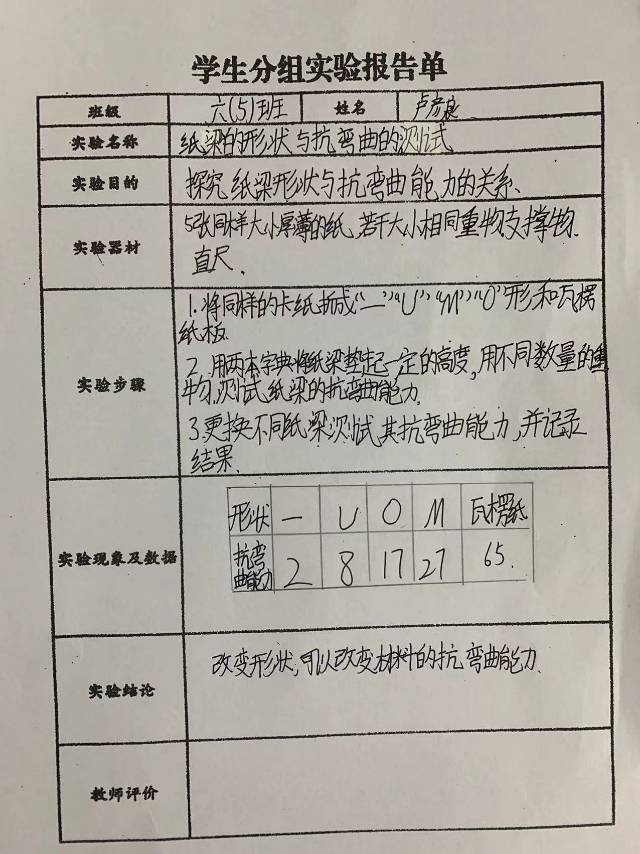 学生分组实验报告单
班级 六(5)班 姓名 卢彦良
实验名称 纸梁的形状与抗弯曲的测试
实验目的 探究纸梁形状与抗弯曲能力的关系、
实验器材 5张同样大小厚薄的纸,若干大小相同重物,支撑物.
直尺.
实验步骤 1.将同样的卡纸折成“一”“U”“M”“O”形和瓦楞
纸板.
2.用两本字典将纸梁垫起一定的高度,用不同数量的重
物.测试纸梁的抗弯曲能力.
3.更换不同纸梁测试其抗弯曲能力,并记录
结果.
实验现象及数据
形状 一 U O M 瓦楞纸
抗弯曲能力 2 8 17 27 65.
实验结论 改变形状,可以改变材料的抗弯曲能力.
教师评价